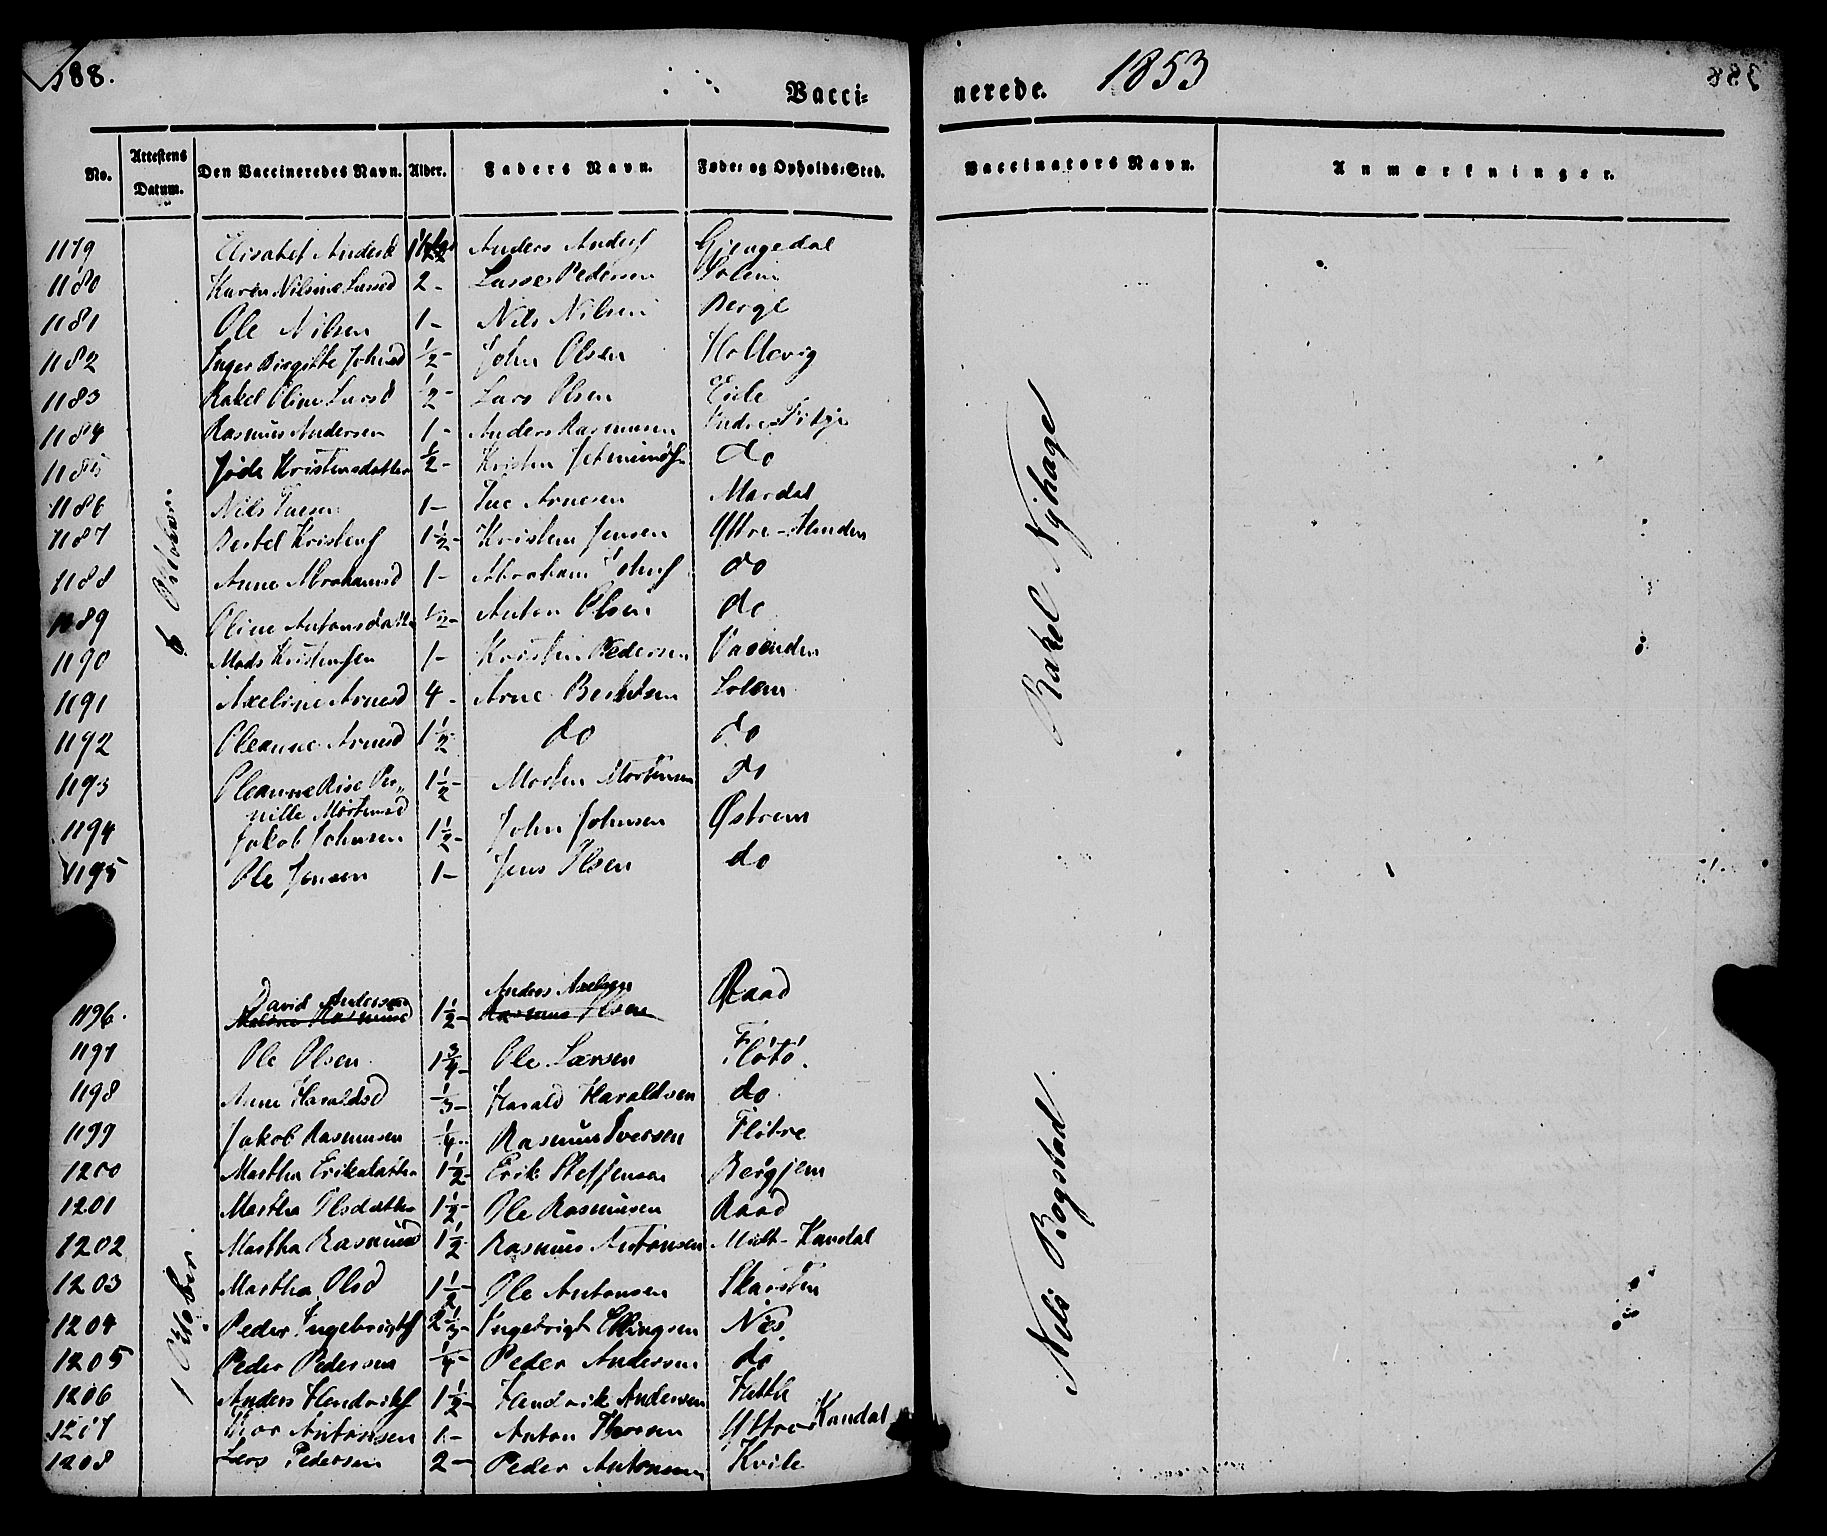 388.
Vacci-
nerede. 1853
No. Attestens Datum. Den Vaccineredes Navn. Alder. Faders Navn. Føde- og Opholds-Sted.
Vaccinators Navn. Anmærkninger.
1179 Anders Anders Gjengedal
1180 Karen Nilsine Larsd 2 - Lasse Pedersen Solem
1181 Ole Nilsen 1 - Nils Nilsen Berge
1182 Inger Birgitte Johnsd ½ - John Olsen Hollevig
1183 Rakel Oline Larsd ½ - Lars Olsen Eide
1184 Rasmus Andersen 1 - Anders Rasmusen Indre-Fitje
1185 Kristensdatter ½ - Kristen do
1186 Nils 1 - Arnesen Mardal
1187 Bertel Kristens 1½ - Kristen Jensen Yttre-Hunden
1188 Anne Abrahamsd 1 - Abraham do
1189 Oline Antonsdatter ½ - Anton Olsen do
1190 Mads Kristensen 1 - Kristen Pedersen Vasenden
1191 Axeline Arnesd 4 - Arne Bertelsen Solem
1192 Oleanne Arnesd 1½ do do
1193 Oleanne Rise Per-
nille Mortensd 1½ - Morten Mortensen do
1194 Jakob Johnsen 1½ - John Johnsen Østrem
1195 Ole Jensen 1 - Jens Olsen do
6 Oktober.
Rakel Nyhage
1196. David Andersen 1½ - Anders Raad
Rasmus Olsen
1197 Ole Olsen 1¾ - Ole Larsen Flötö.
1198 Anne Haraldsd ⅓ - Harald Haraldsen do
1199 Jakob Rasmusen ¼ - Rasmus Iversen Flötre
1200 Martha Eriksdatter 1½ - Erik Steffensen Bergjem
1201 Martha Olsdatter 1½ - Ole Rasmusen Raad
1202 Martha Rasmusd 1½ Rasmus Antonsen Midt-Kandal
1203 Martha Olsd 1½ - Ole Antonsen Skarsten
1204 Peder Ingebrigts 2⅓ - Ingebrigt Ellingsen Nes
1205 Peder Pedersen ¼ - Peder Andersen do
1206 Anders Hendriks 1½ - Hendrik Andersen
1207 Antonsen 1 - Anton Yttre Kandal
1208 Lars Pedersen 2 - Peder Antonsen Kvile
1 Oktober.
Nils Bogstad.